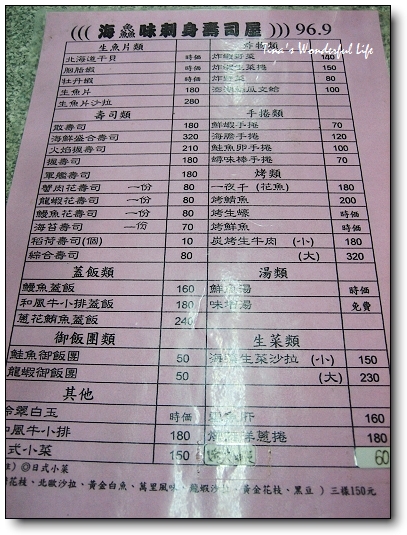 ((( 海鱻味刺身壽司屋 ))) 96.9
Tina's Wonderful Life
生魚片類
北海道干貝 時価
胭脂蝦 時価
牡丹蝦 時価
生魚片 180
生魚片沙拉 280
壽司類
散壽司 180
海鮮盛合壽司 320
火焰握壽司 210
握壽司 180
軍艦壽司 180
蟹肉花壽司 一份 80
龍蝦花壽司 一份 80
鰻魚花壽司 一份 80
海苔壽司 一份 70
稻荷壽司(個) 10
綜合壽司 80
蓋飯類
鰻魚蓋飯 160
和風牛小排蓋飯 180
蔥花鮪魚蓋飯 240
御飯團類
鮭魚御飯團 50
龍蝦御飯團 50
其他
翠白玉 時価
和風牛小排 180
式小菜 150
炸物類
140
150
80
160
手捲類
鮮蝦手捲 70
海膽手捲 120
鮭魚卵手捲 100
蟳味棒手捲 70
烤類
一夜干(花魚) 180
烤鯖魚 200
烤生蠔 時価
烤鮮魚 時価
炭烤生牛肉 (小) 180
(大) 320
湯類
鮮魚湯 時価
味噌湯 免費
生菜類
海鮮生菜沙拉 (小) 150
(大) 230
160
蔥捲 180
60
◎日式小菜
花枝、北歐沙拉、黃金白魚、萬里風味、龍蝦沙拉、黃金花枝、黑豆 ) 三樣150元